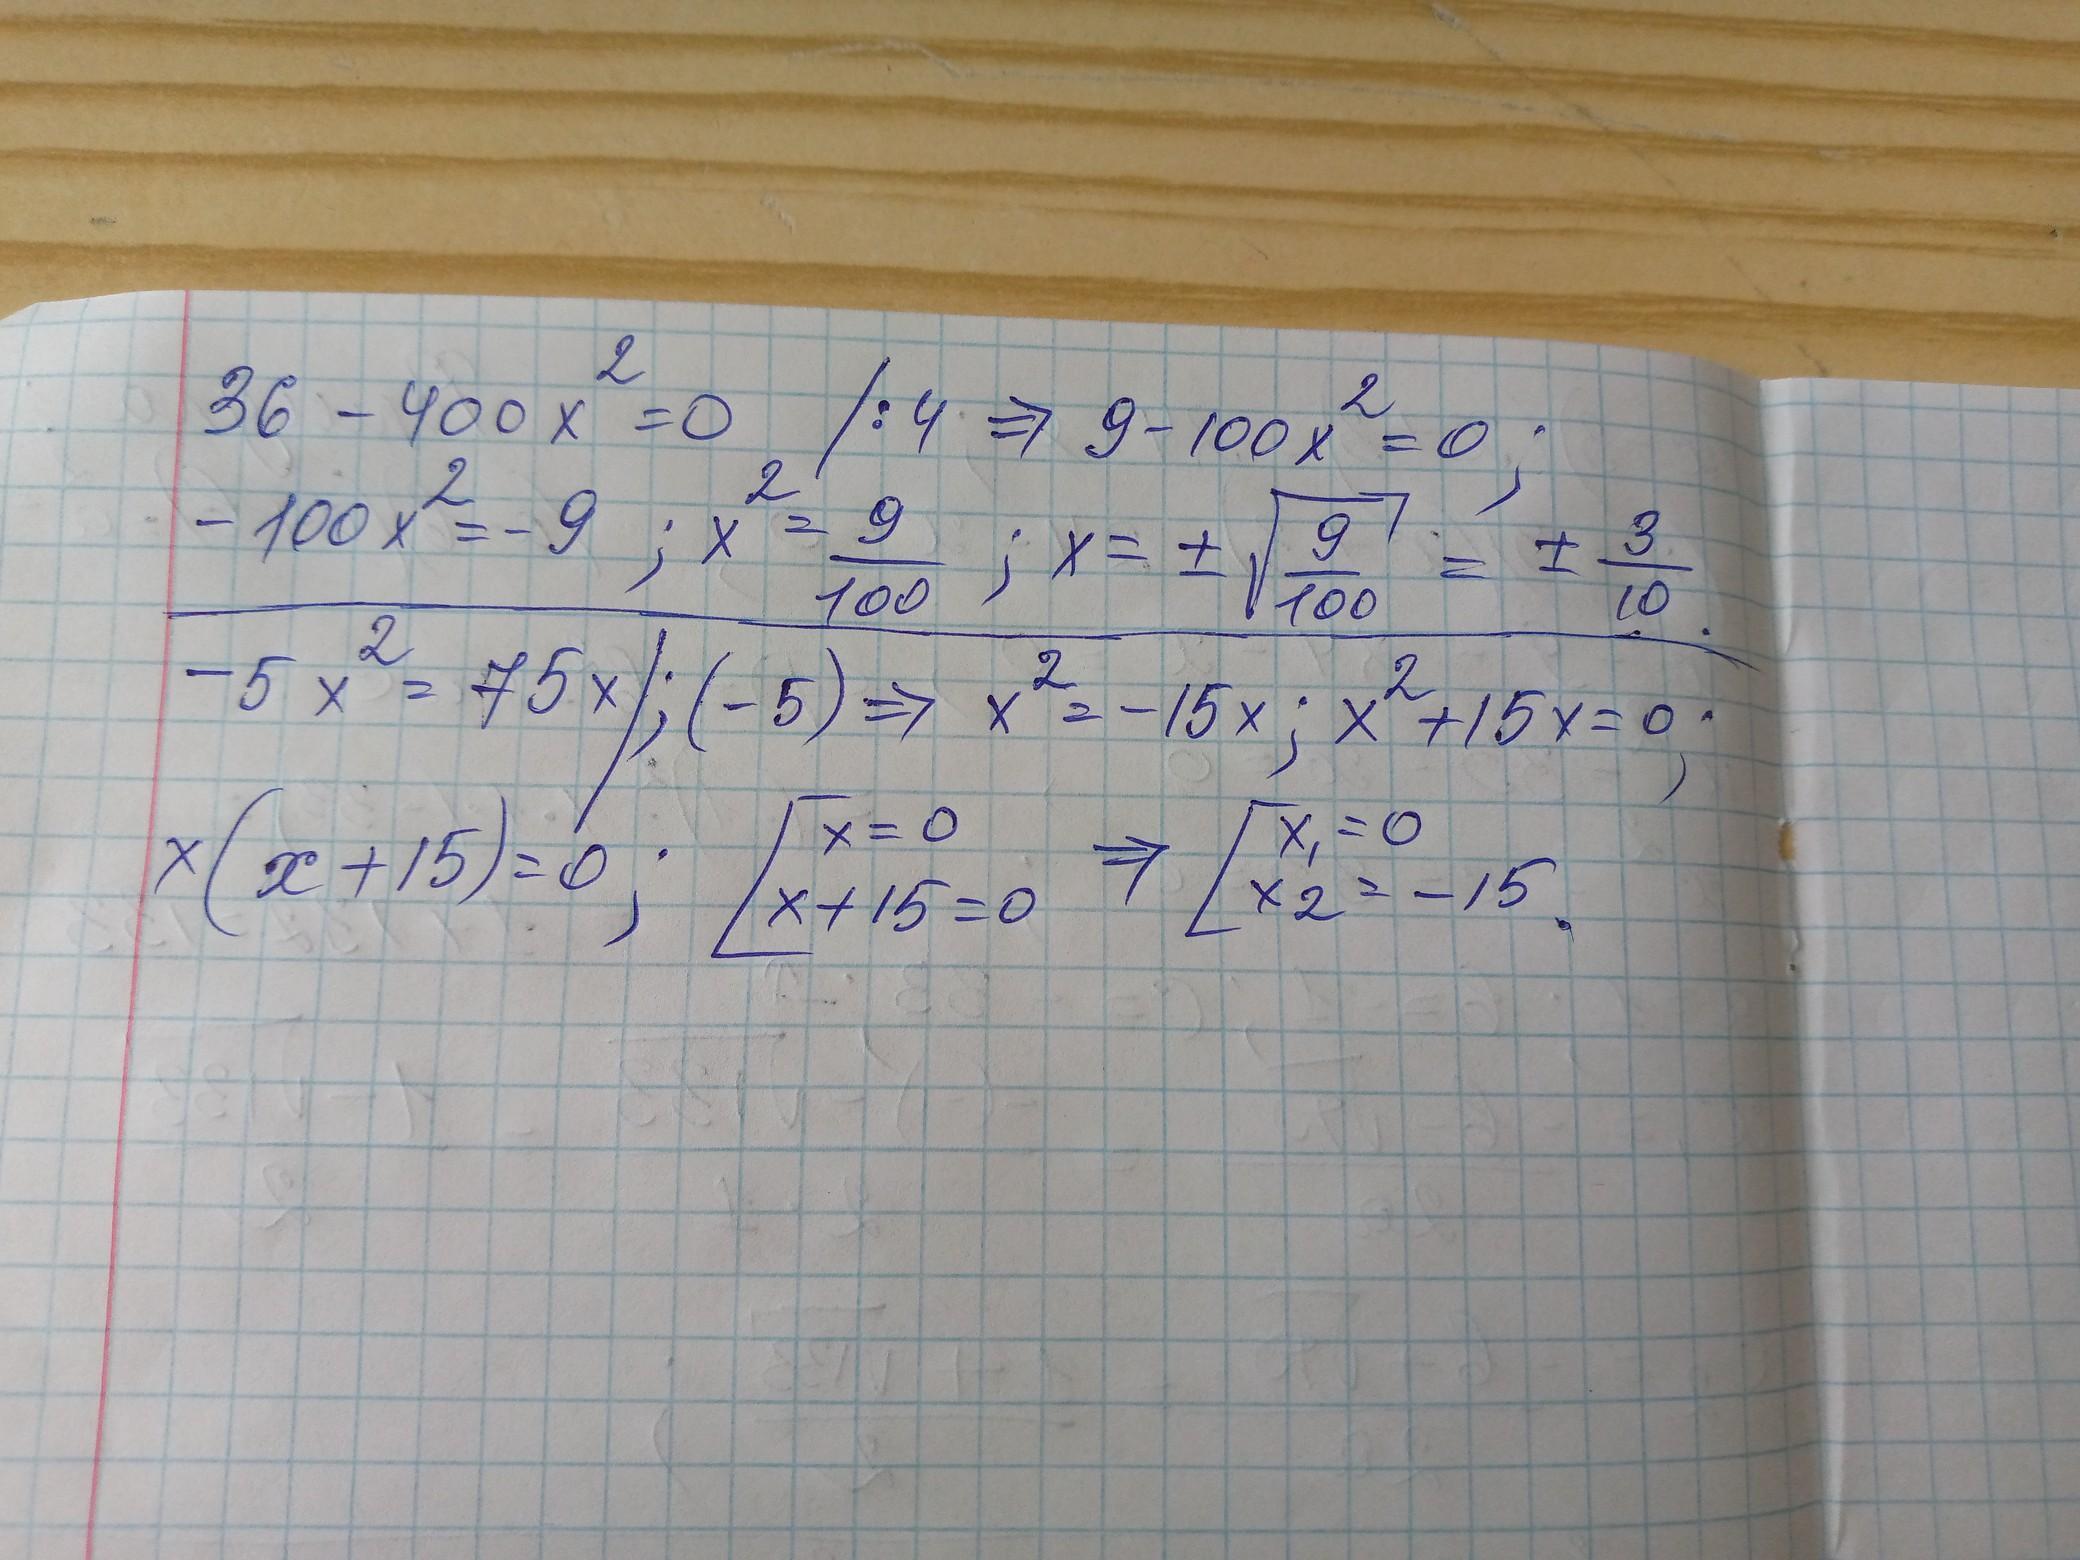 36 - 400x² = 0 /:4 ⇒ 9 - 100x² = 0;
-100x² = -9; x² = 9/100; x = ±√(9/100) = ±3/10.
-5x² = 75x /:(-5) ⇒ x² = -15x; x² + 15x = 0;
x(x+15) = 0; [x = 0 ⇒ [x₁ = 0
x+15 = 0 x₂ = -15.